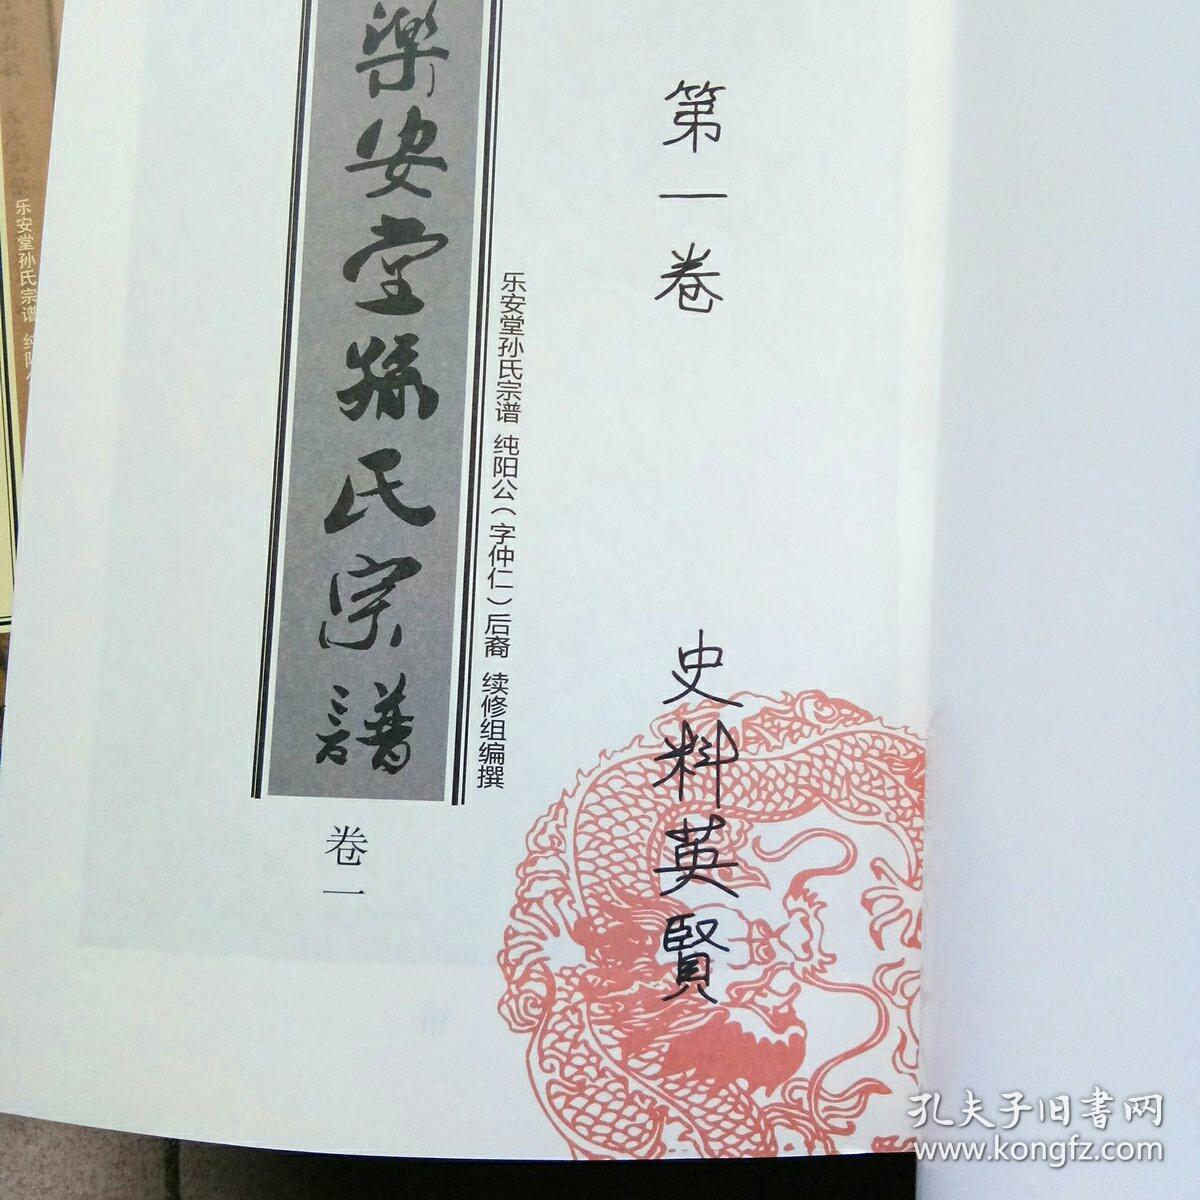 第一卷
史料英賢
乐安堂孙氏宗谱 纯阳公（字仲仁）后裔 续修组编撰
樂安堂孫氏宗譜
卷一
乐安堂孙氏宗谱
孔夫子旧书网
www.kongfz.com